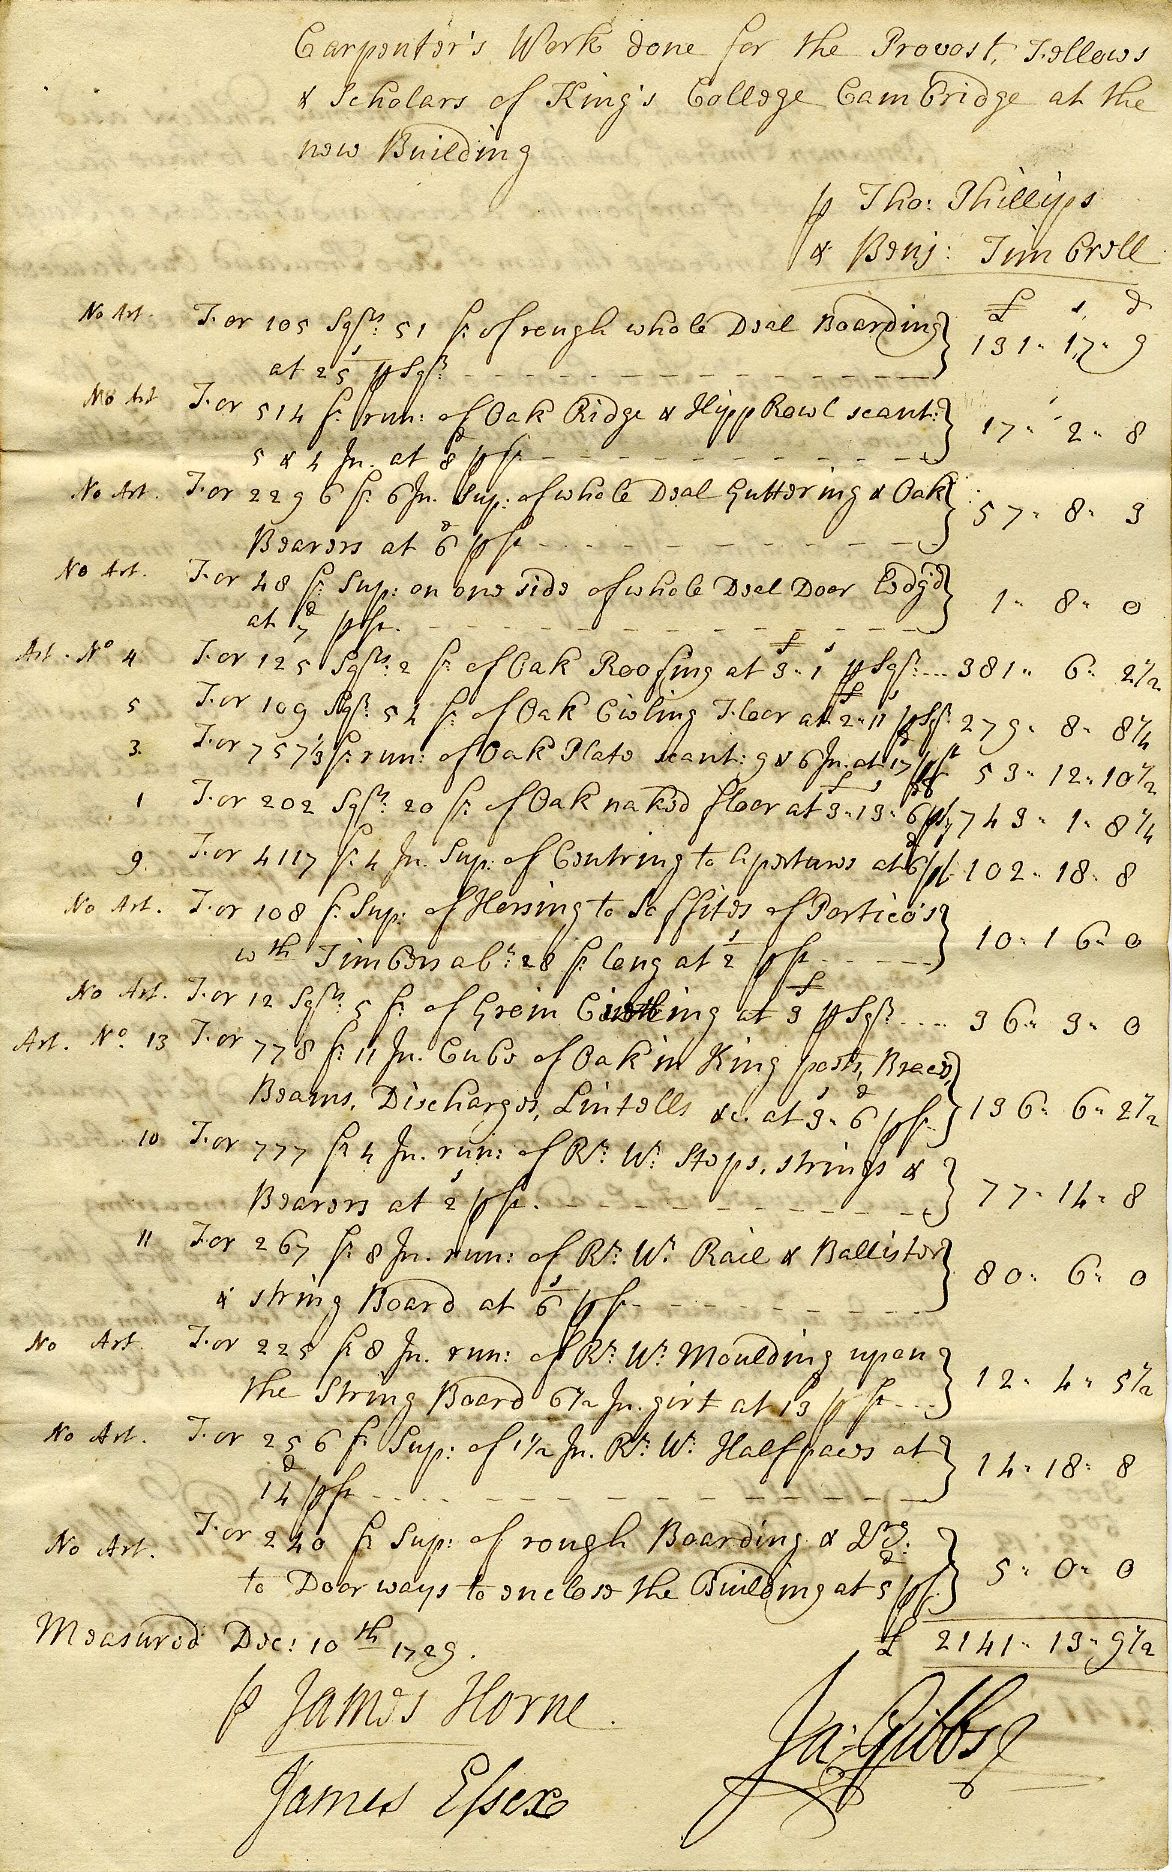 Carpenter's Work done for the Provost, Fellows
& Scholars of King's College Cambridge at the
new Building
p Tho: Phillips
& Benj: Timbrell
£ s d
No Art. For 105 Sqrs: 51 ft: of rough whole Deal Boarding
at 25 s p Sqr. 131 " 17 " 9
No Art For 514 ft: run: of Oak Ridge & Hipp Rowl scant:
5 & 4 In. at 8 d p ft 17 " 2 " 8
No Art. For 2296 ft: 6 In. Sup: of whole Deal Guttering & Oak
Bearers at 6 d p ft 57 " 8 " 3
No Art. For 48 ft: Sup: on one side of whole Deal Door Ledg'd
at 7 d p ft. 1 " 8 " 0
Art. No 4 For 125 Sqrs: 2 ft: of Oak Roofing at £3 " 1 s p Sqr: 381 " 6 " 2½
5 For 109 Sqrs: 54 ft: of Oak Cieling Floor at £2 " 11 s p Sqr: 279 " 8 " 8¼
3 For 757⅓ ft: run: of Oak Plate scant: 9 & 6 In. at 17 d p ft 53 " 12 " 10½
1 For 202 Sqrs: 20 ft: of Oak naked floor at £3 " 13 s " 6 d p Sqr 743 " 1 " 8¼
9. For 4117 ft: 4 In. Sup: of Centring to Apertures at 6 d p ft 102 " 18 " 8
No Art. For 108 ft: Sup: of Hersing to Soffites of Portico's
wth Timbers abt: 28 ft: long at 2 s p ft 10 " 16 " 0
No Art. For 12 Sqrs: 5 ft: of Groin Cieling at £3 p Sqr: 36 " 3 " 0
Art. No. 13 For 778 ft: 11 In. Cube of Oak in King posts, Braces,
Beams, Discharges, Lintells &c. at 3 s " 6 d p ft. 136 " 6 " 2½
10 For 777 ft: 4 In. run: of Rt: Wt: Steps, strings &
Bearers at 2 s p ft. 77 " 14 " 8
11 For 267 ft: 8 In. run: of Rt: Wt: Rail & Ballister
& string Board at 6 s p ft 80 " 6 " 0
No Art. For 225 ft: 8 In. run: of Rt: Wt: Moulding upon
the String Board 6½ In. girt at 13 d p ft 12 " 4 " 5½
No Art. For 256 ft: Sup: of 1½ In. Rt: Wt: Halfpaces at
14 d p ft 14 " 18 " 8
No Art. For 240 ft: Sup: of rough Boarding &
to Door ways to enclose the Building at 5 d p ft. 5 " 0 " 0
Measured Dec: 10th 1729. £ 2141 " 13 " 9½
p James Horne.
Ja: Gibbs
James Essex